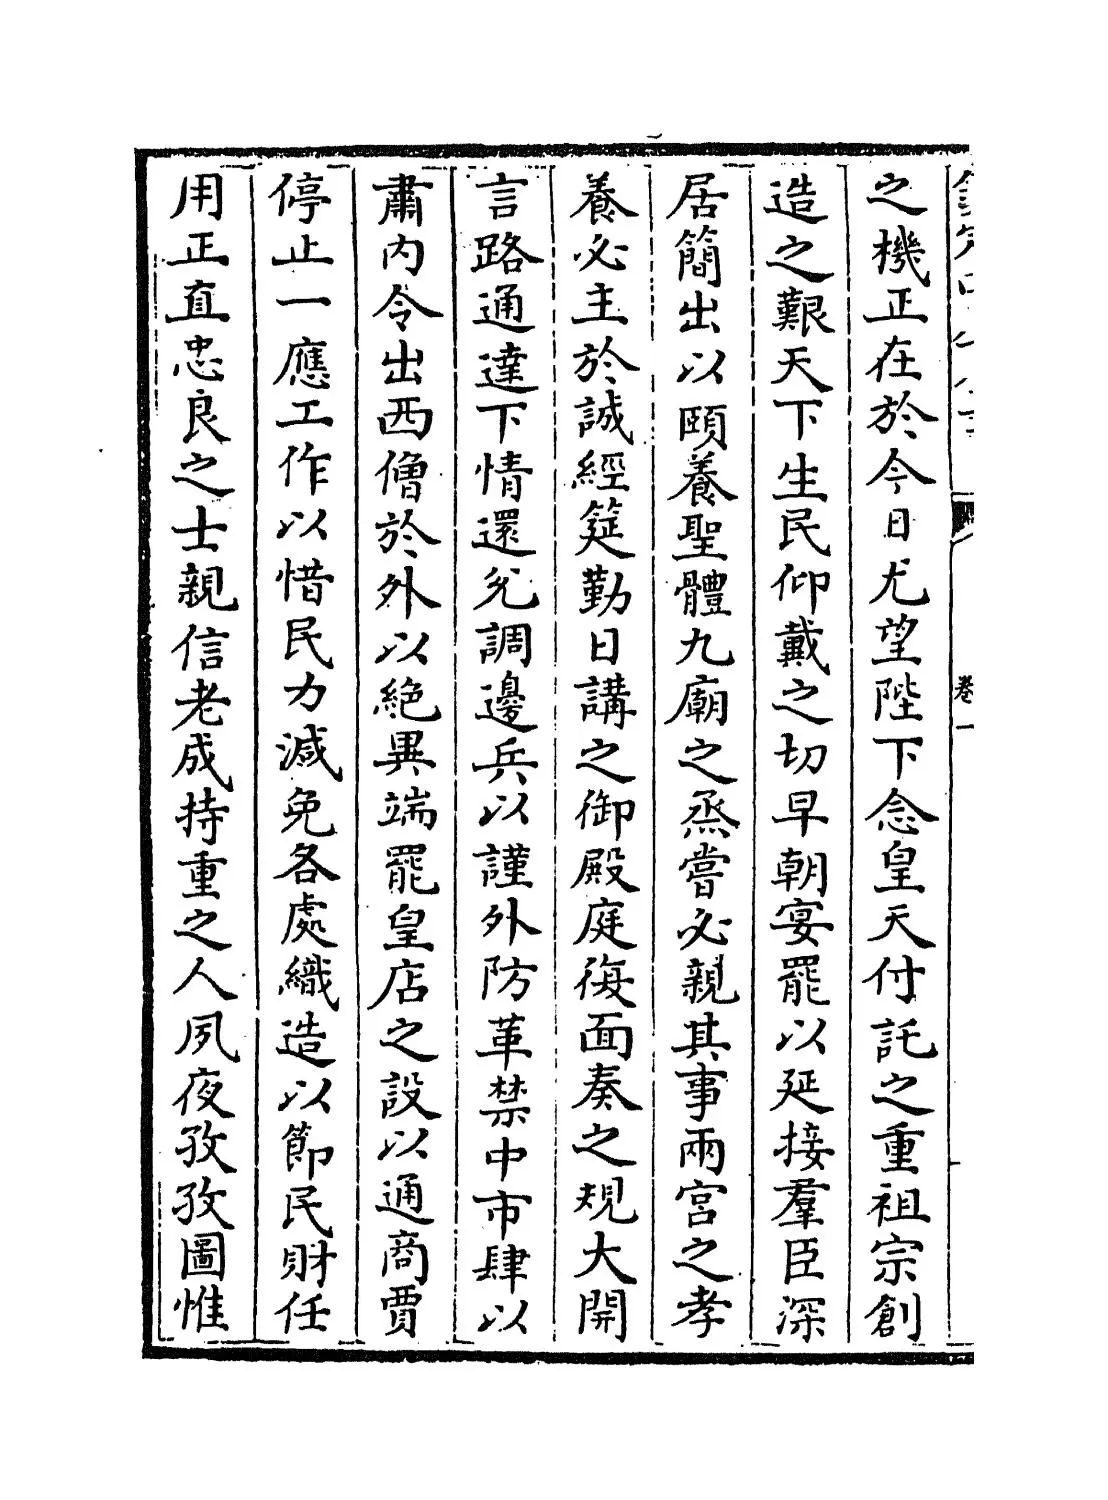 卷一
之機正在於今日尤望陛下念皇天付託之重祖宗創
造之艱天下生民仰戴之切早朝宴罷以延接羣臣深
居簡出以頤養聖體九廟之烝嘗必親其事兩宮之孝
養必主於誠經筵勤日講之御殿庭復面奏之規大開
言路通達下情還兊調邊兵以謹外防革禁中市肆以
肅內令出西僧於外以絕異端罷皇店之設以通商賈
停止一應工作以惜民力減免各處織造以節民財任
用正直忠良之士親信老成持重之人夙夜孜孜圖惟